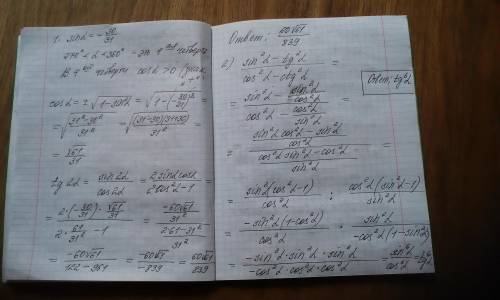 1. sinα = -30/31
270° < α < 360° = это 4 ой четверть
В 4 ой четверти cosα > 0 (знак "+")
cosα = ± √(1-sin²α) = √(1-(-30/31)²) =
= √((31²-30²)/31²) = √((31-30)(31+30)/31²) =
= √61/31
tg 2α = sin2α/cos2α = 2sinα cosα/(2cos²α-1) =
2·(-30/31)·√61/31 / (2·61/31² - 1) = (-60√61/31²) / ((2·61-31²)/31²) =
= -60√61/(122-961) = -60√61/-839 = 60√61/839
Ответ: 60√61/839
2) (sin²α - tg²α)/(cos²α - ctg²α) =
= (sin²α - sin²α/cos²α)/(cos²α - cos²α/sin²α) =
Ответ: tg²α
= ((sin²α cos²α - sin²α)/cos²α) / ((cos²α sin²α - cos²α)/sin²α) =
= sin²α(cos²α-1)/cos²α : cos²α(sin²α-1)/sin²α =
= -sin²α(1-cos²α)/cos²α · sin²α/-cos²α(1-sin²α) =
= -sin²α·sin²α·sin²α/-cos²α·cos²α·cos²α = sin⁶α/cos⁶α = tg⁶α